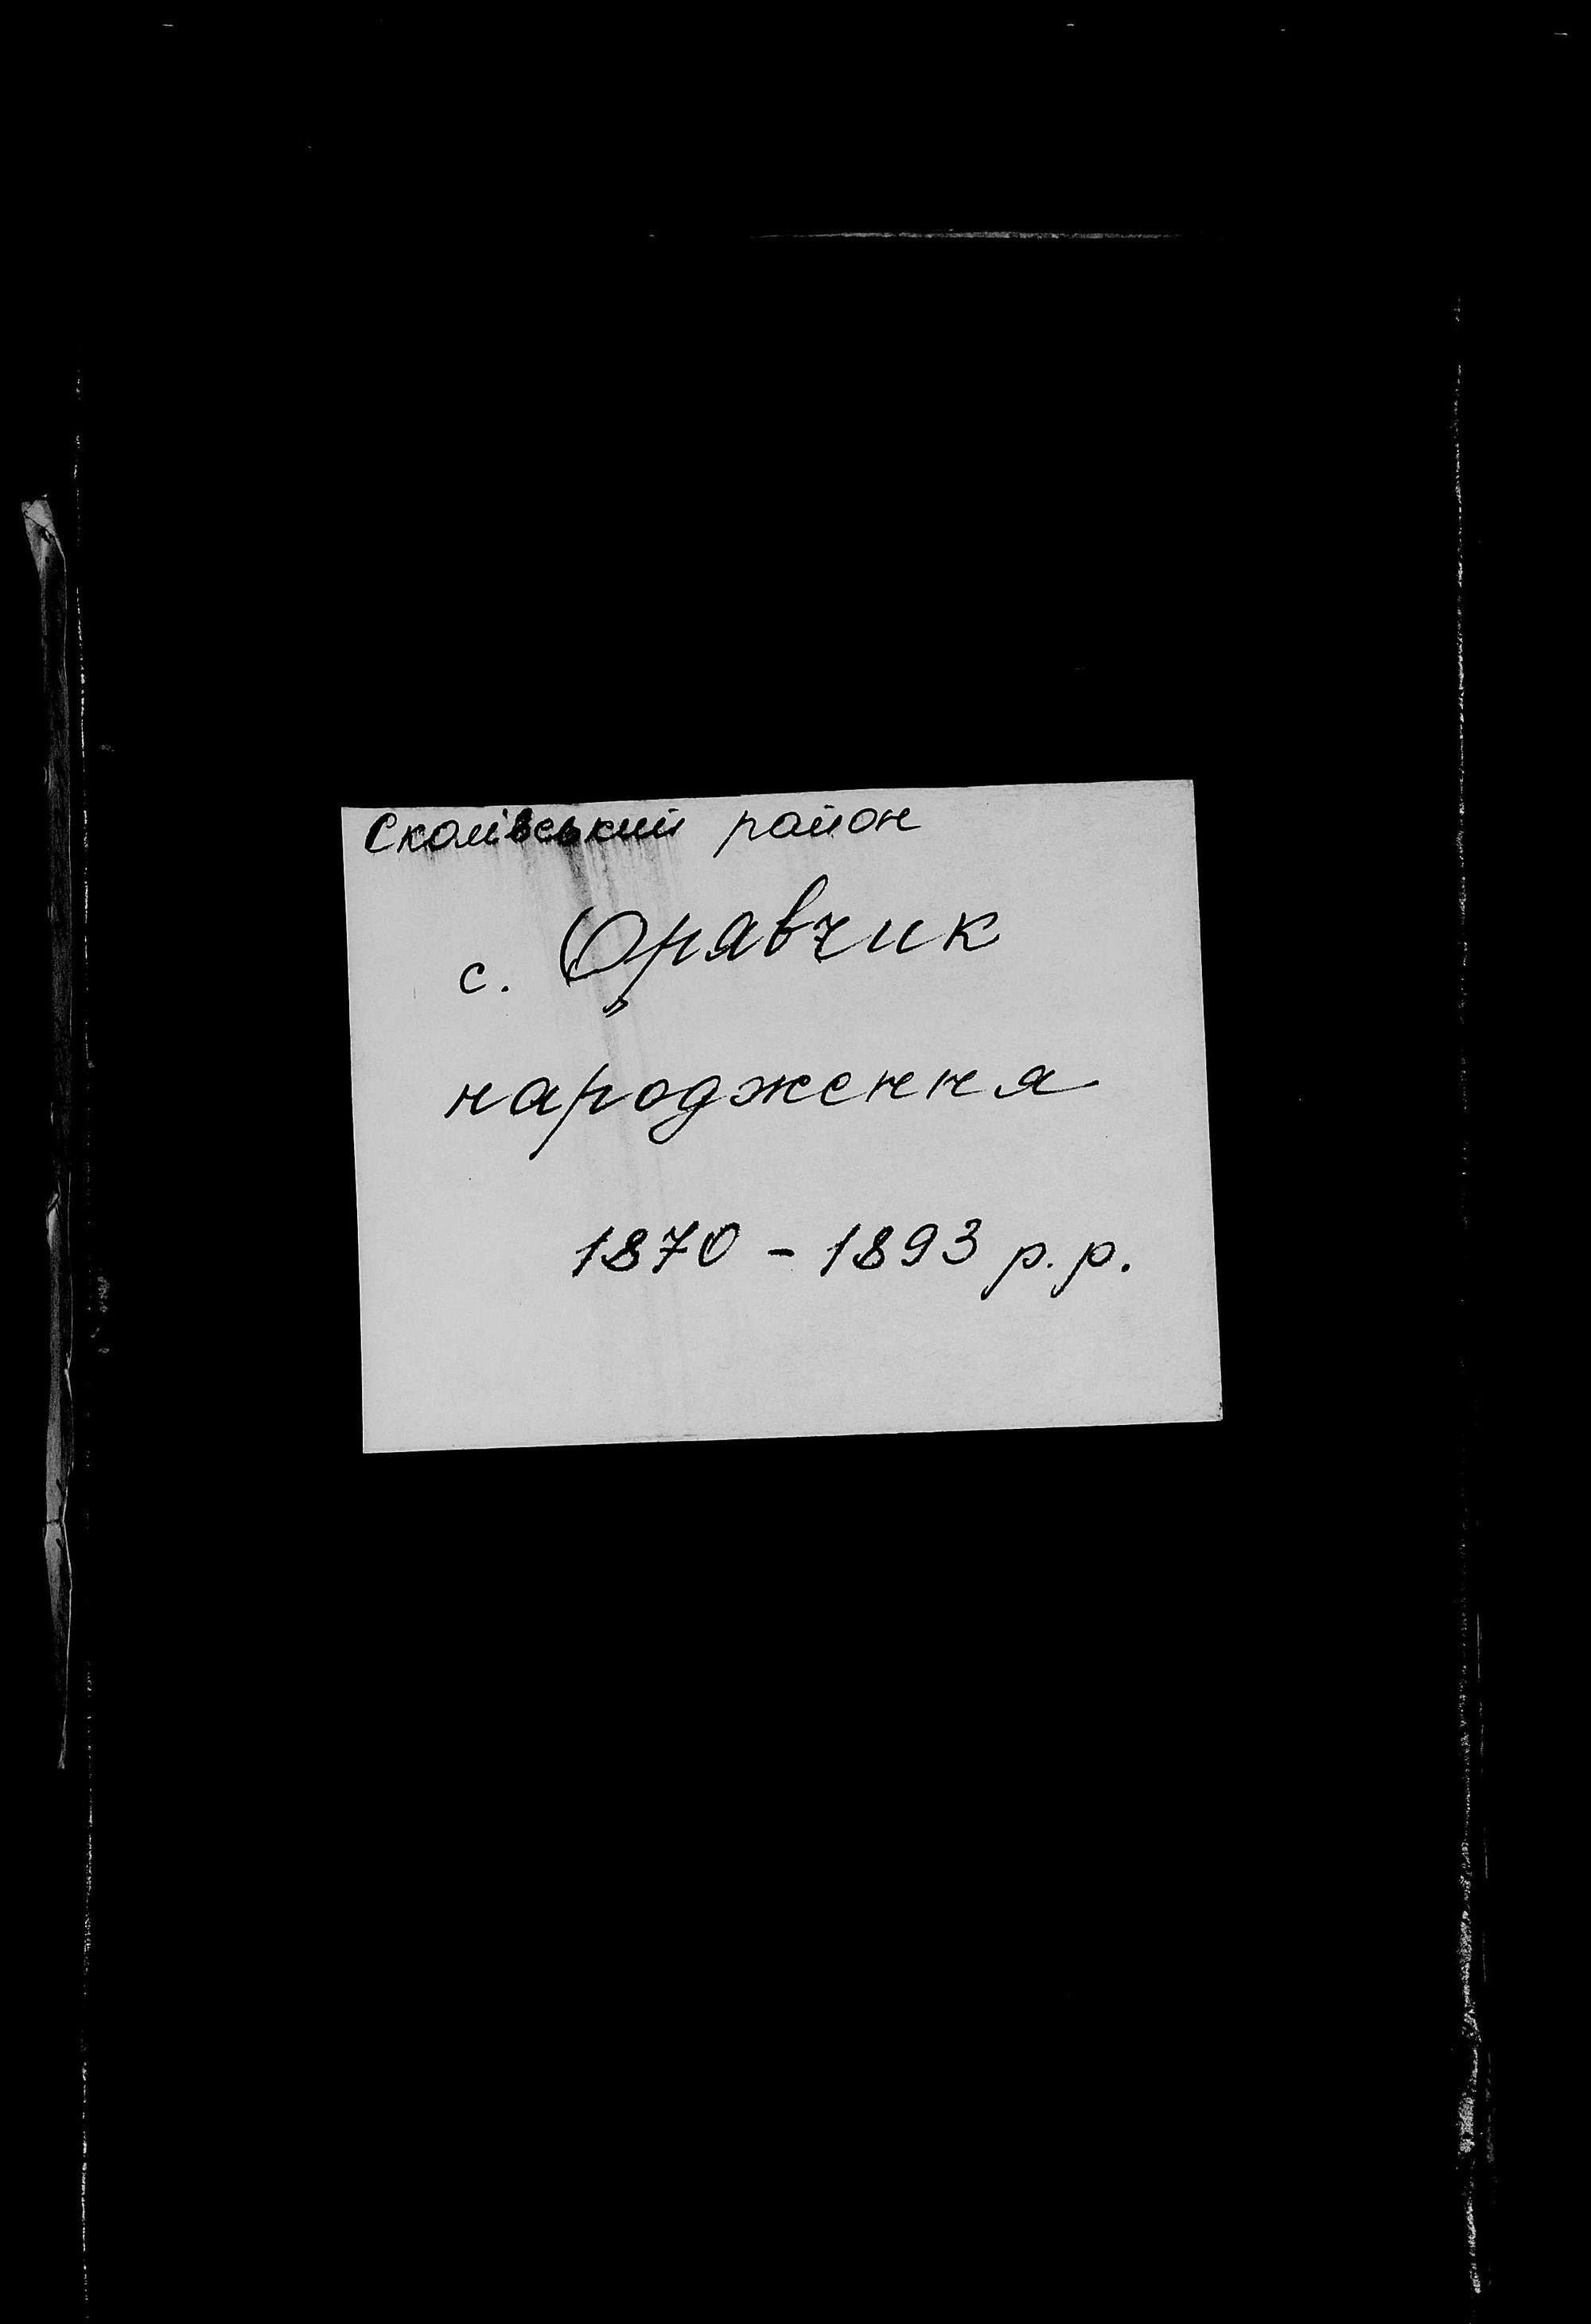 Сколівський район
с. Орявчик
народження
1870 - 1893 р.р.